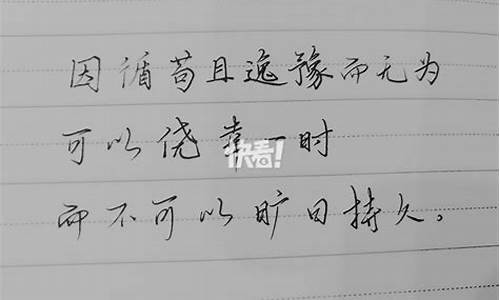 因循苟且逸豫而无为
可以侥幸一时
快看!
而不可以旷日持久。